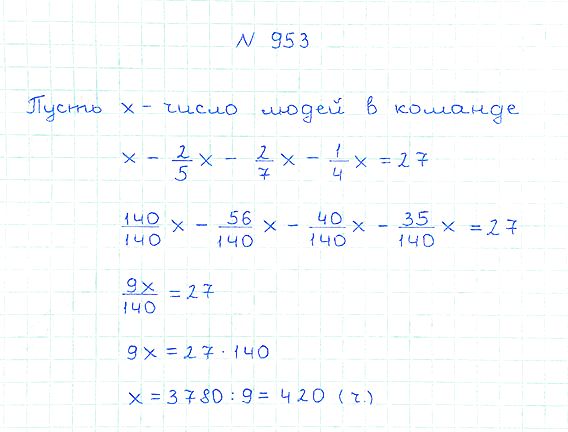 N 953
Пусть x - число людей в команде
x - 2/5 x - 2/7 x - 1/4 x = 27
140/140 x - 56/140 x - 40/140 x - 35/140 x = 27
9x/140 = 27
9x = 27 · 140
x = 3780 : 9 = 420 (ч.)